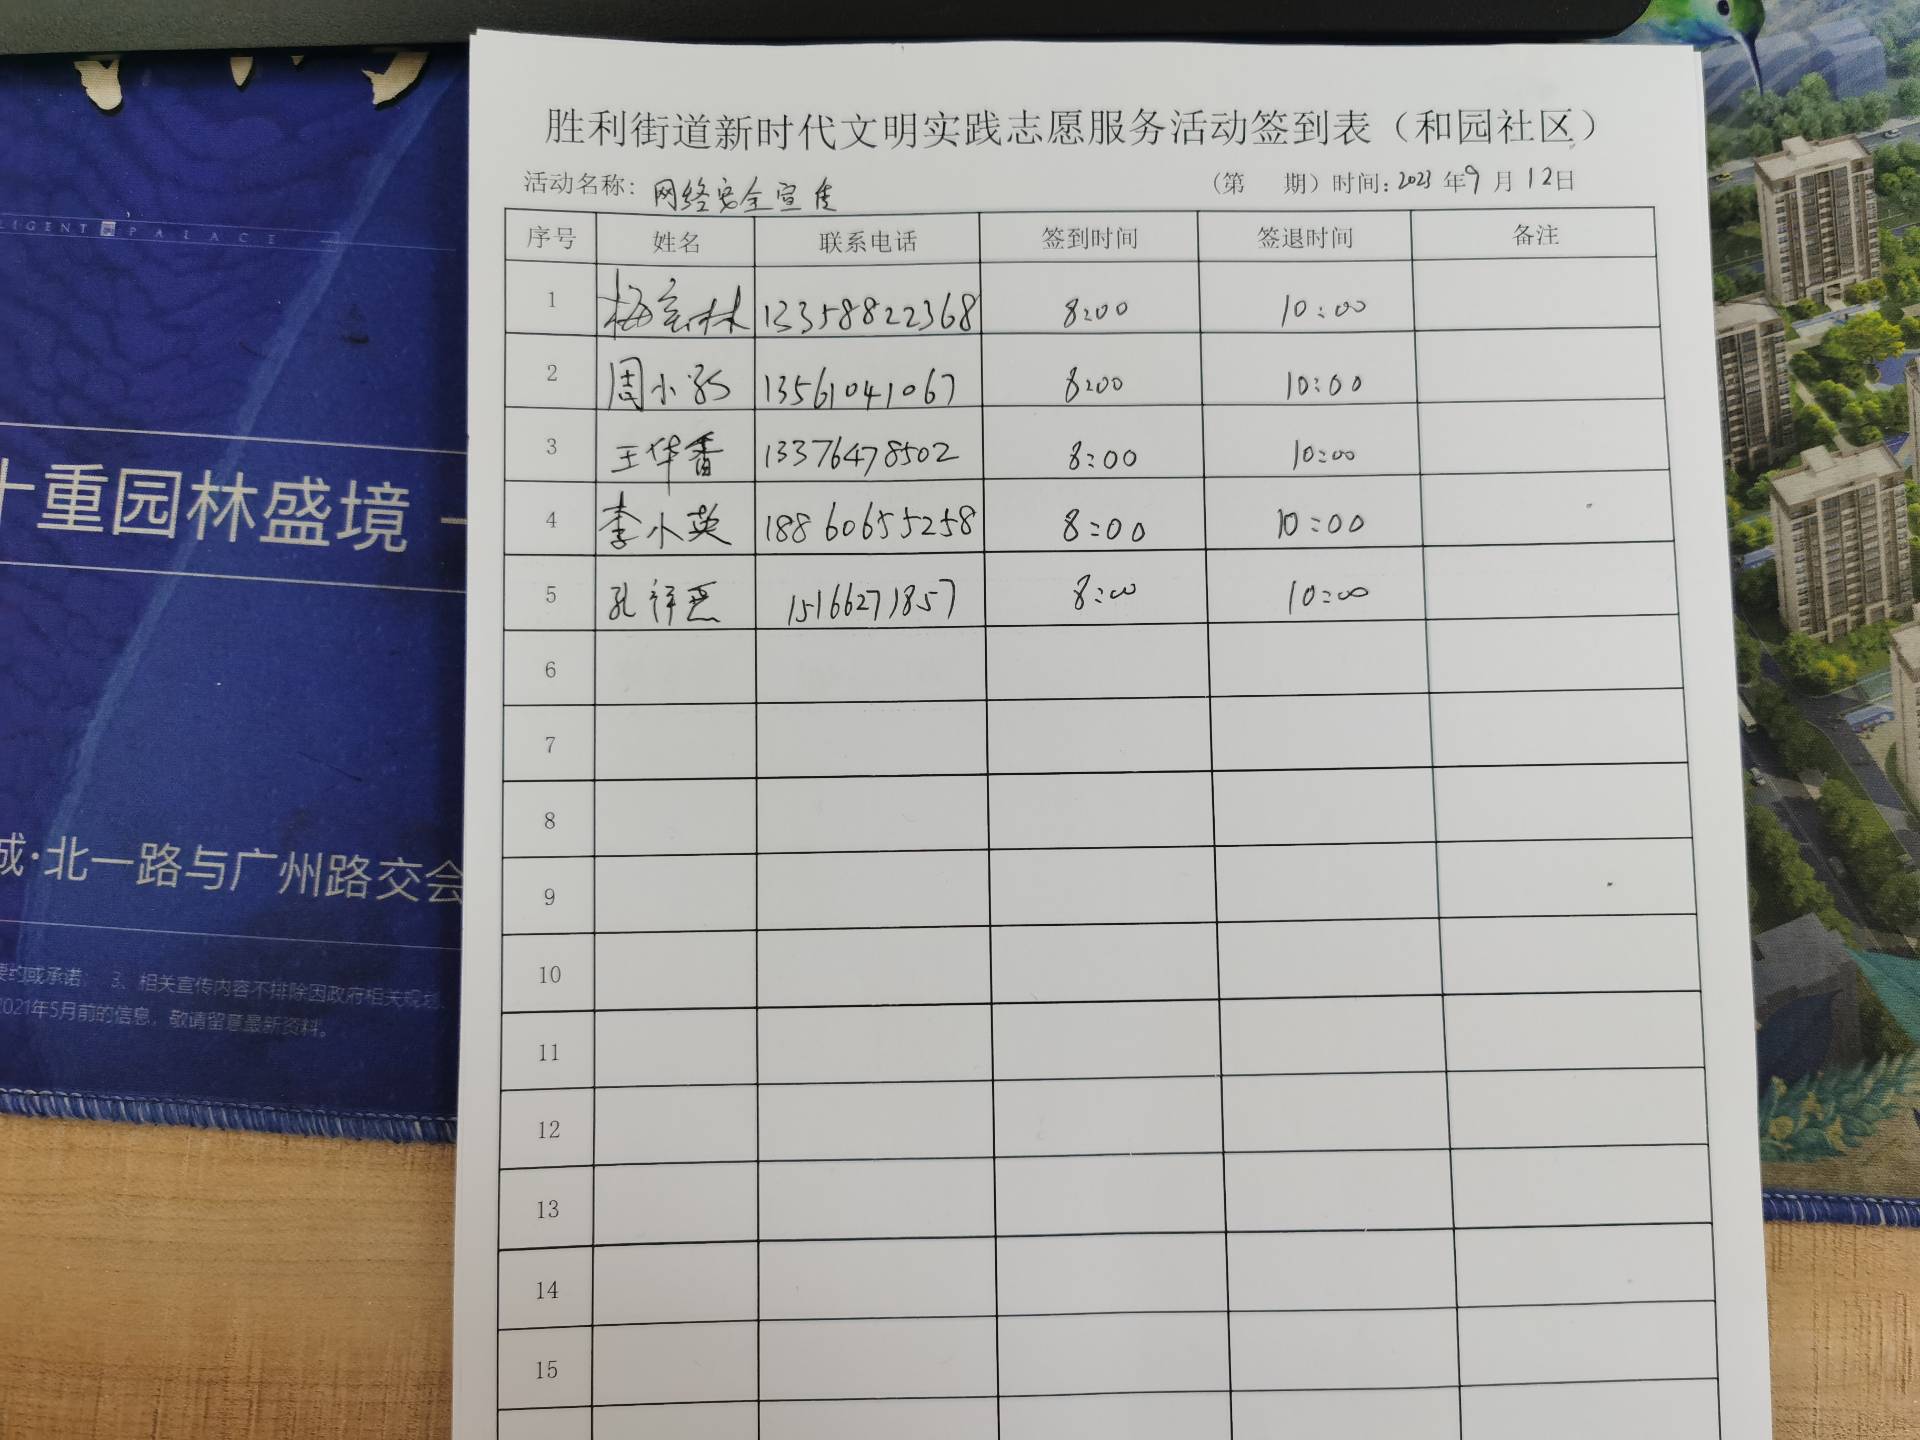 胜利街道新时代文明实践志愿服务活动签到表（和园社区）
活动名称：网络安全宣传 （第 期）时间：2023年9月12日
序号 姓名 联系电话 签到时间 签退时间 备注
1 梅 林 13358822368 8:00 10:00
2 周小 13561041067 8:00 10:00
3 王华香 13376478502 8:00 10:00
4 李小英 18860655258 8:00 10:00
5 孔祥 15166271857 8:00 10:00
6
7
8
9
10
11
12
13
14
15
LIGENT PALACE
十重园林盛境
城·北一路与广州路交会
要约或承诺； 3、相关宣传内容不排除因政府相关规
2021年5月前的信息，敬请留意最新资料。